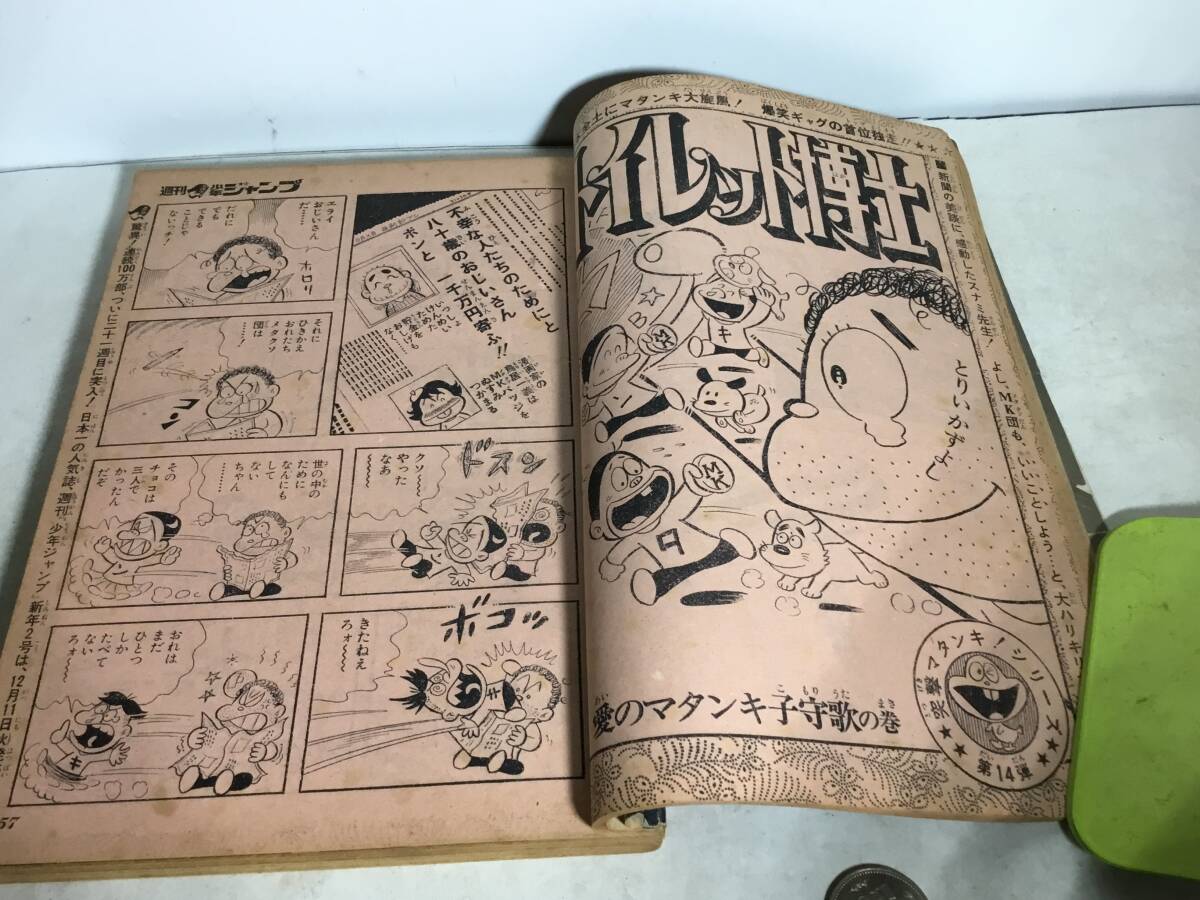 金士にマタンキ大旋風! 爆笑ギャグの首位独走!!★★☆
トイレット博士
とりいかずよし
■新聞の美談に、感動したスナミ先生!
よし、MK団も、いいことしよう…と、大ハリキリ
MK
キ
MK
タ
突撃マタンキ!シリーズ
★★第14弾★★
愛のマタンキ子守歌の巻
週刊少年ジャンプ
不幸な人たちのためにと
八十歳のおじいさん
ポンと
一千万円寄ふ!!
いっしょう
けんめい
ためた
貯金を
おしげも
なく
漫画家の
鳥居一義は
MKバッジを
ぬすみ
つかまる
エライ
おじいさん
だ……
だれに
でも
できる
ことじゃ
ないッチ!
ホロリ
それに
ひきかえ
おれたち
メタクソ
団は
……!
コン
ドスン
クソ〜〜
やった
なあ
世の中の
ために
なんにも
して
ない
ちゃん
その
チョコは
三人で
かったん
だぞ
ボコッ
きたねえ
ろォ〜〜
おれは
まだ
ひとつ
しか
たべて
ない
ろォ〜〜
キ
驚異!連続100万部、ついに二十一週目に突入! 日本一の人気誌、週刊少年ジャンプ 新年2号は、12月11日(火)発
57